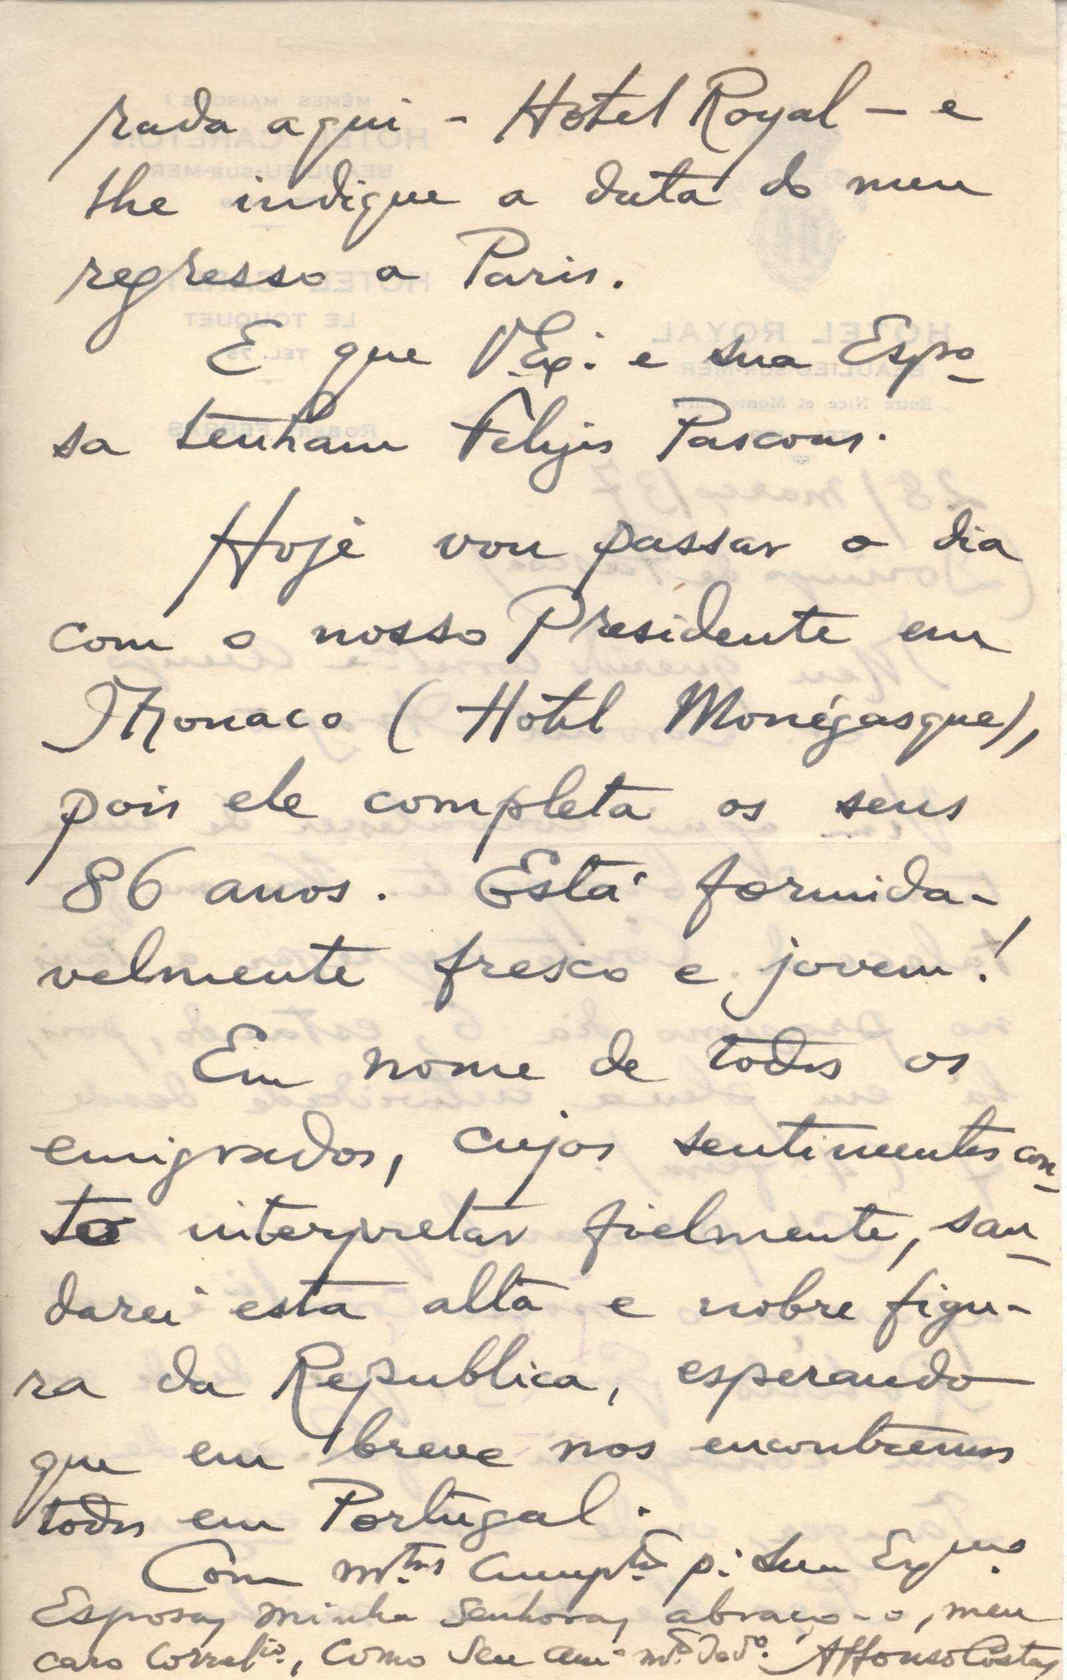 rada aqui - Hotel Royal - e
lhe indique a data do meu
regresso a Paris.
E que V. Ex.ª e sua Espo-
sa tenham Felizes Pascoas.
Hoje vou passar o dia
com o nosso Presidente em
Monaco (Hotel Monégasque),
pois ele completa os seus
86 anos. Está formida-
velmente fresco e jovem!
Em nome de todos os
emigrados, cujos sentimentos con-
to interpretar fielmente, sau-
darei esta alta e nobre figu-
ra da Republica, esperando
que em breve nos encontremos
todos em Portugal.
Com m.tos cumpt.os p.ª sua Ex.ma
Esposa, minha Senhora, abraço-o, meu
caro Correlig.º, como seu am.º m.to ded.º Affonso Costa
HOTEL ROYAL
BEAULIEU-SUR-MER
Entre Nice et Monte-Carlo
MÊMES MAISONS
HOTEL CARLTON
BEAULIEU-SUR-MER
HOTEL
LE TOUQUET
TEL.
28/março/37